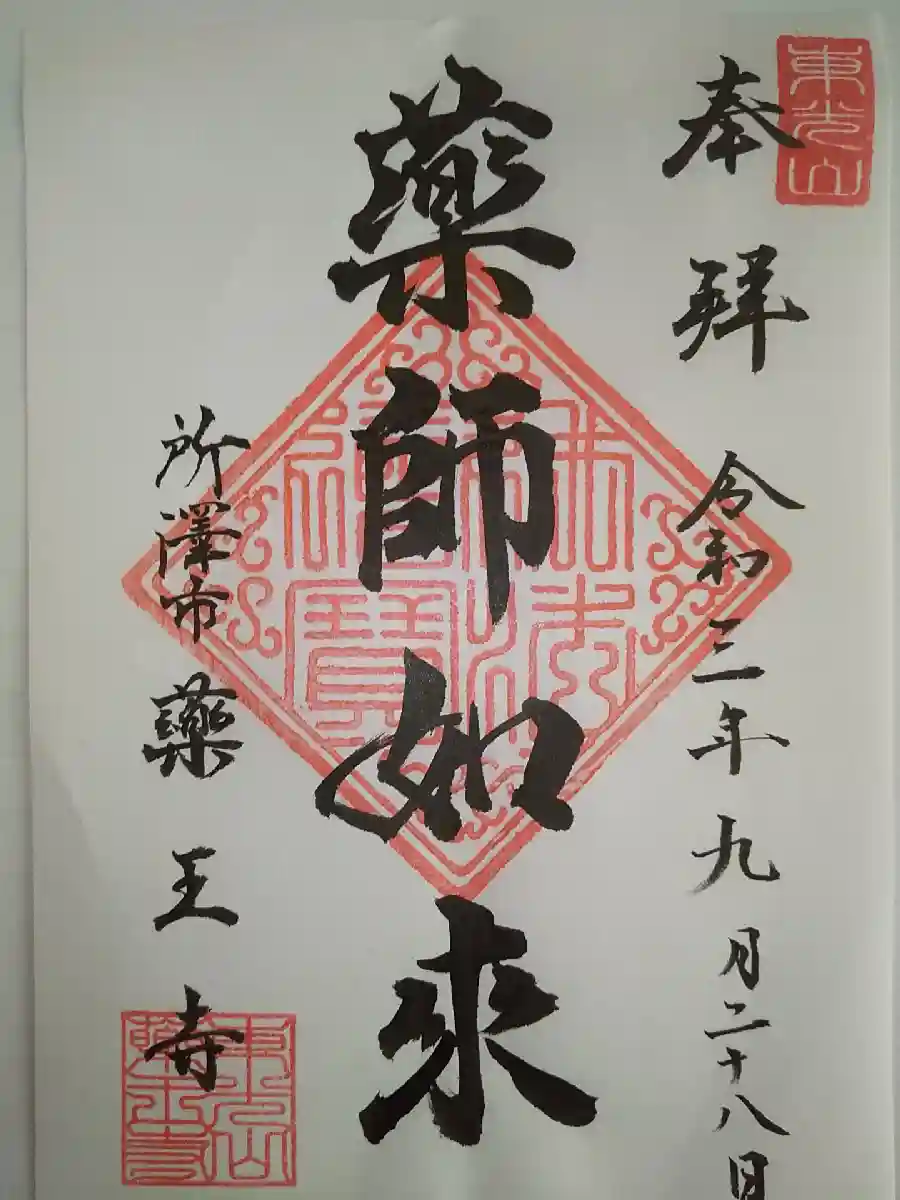 東光山
奉拜 令和三年九月二十八日
藥師如来
佛法僧寶
所澤市 藥王寺
東光山
藥王寺